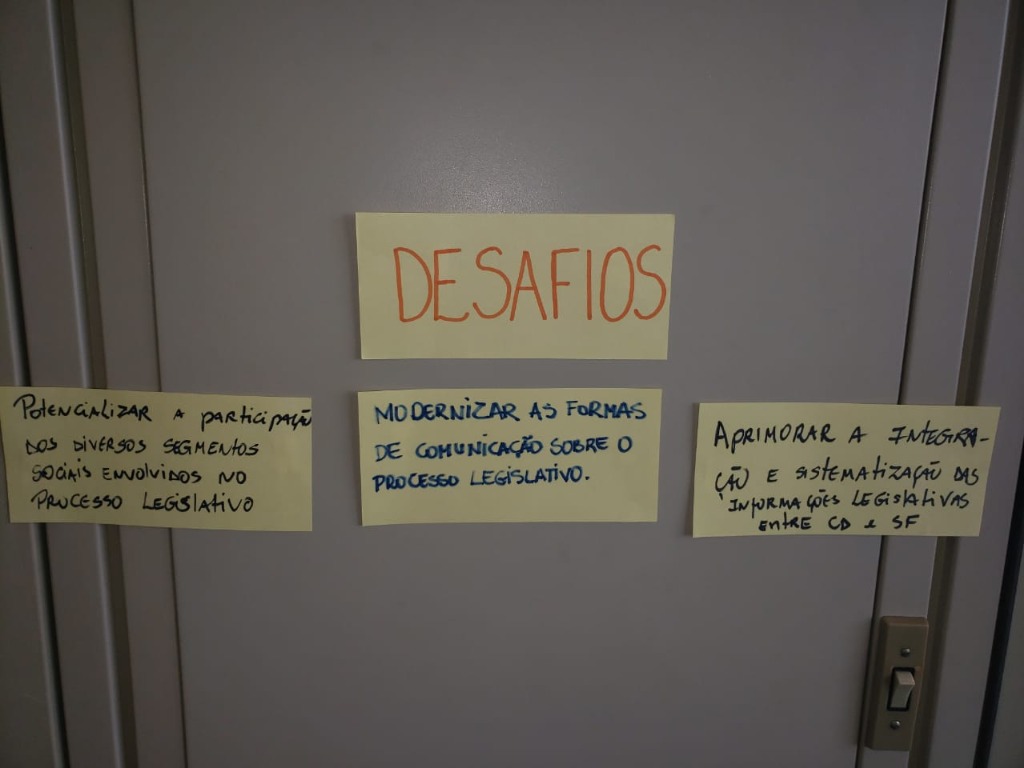 DESAFIOS
POTENCIALIZAR A PARTICIPAÇÃO
DOS DIVERSOS SEGMENTOS
SOCIAIS ENVOLVIDOS NO
PROCESSO LEGISLATIVO
MODERNIZAR AS FORMAS
DE COMUNICAÇÃO SOBRE O
PROCESSO LEGISLATIVO.
APRIMORAR A INTEGRA-
ÇÃO E SISTEMATIZAÇÃO DAS
INFORMAÇÕES LEGISLATIVAS
ENTRE CD e SF